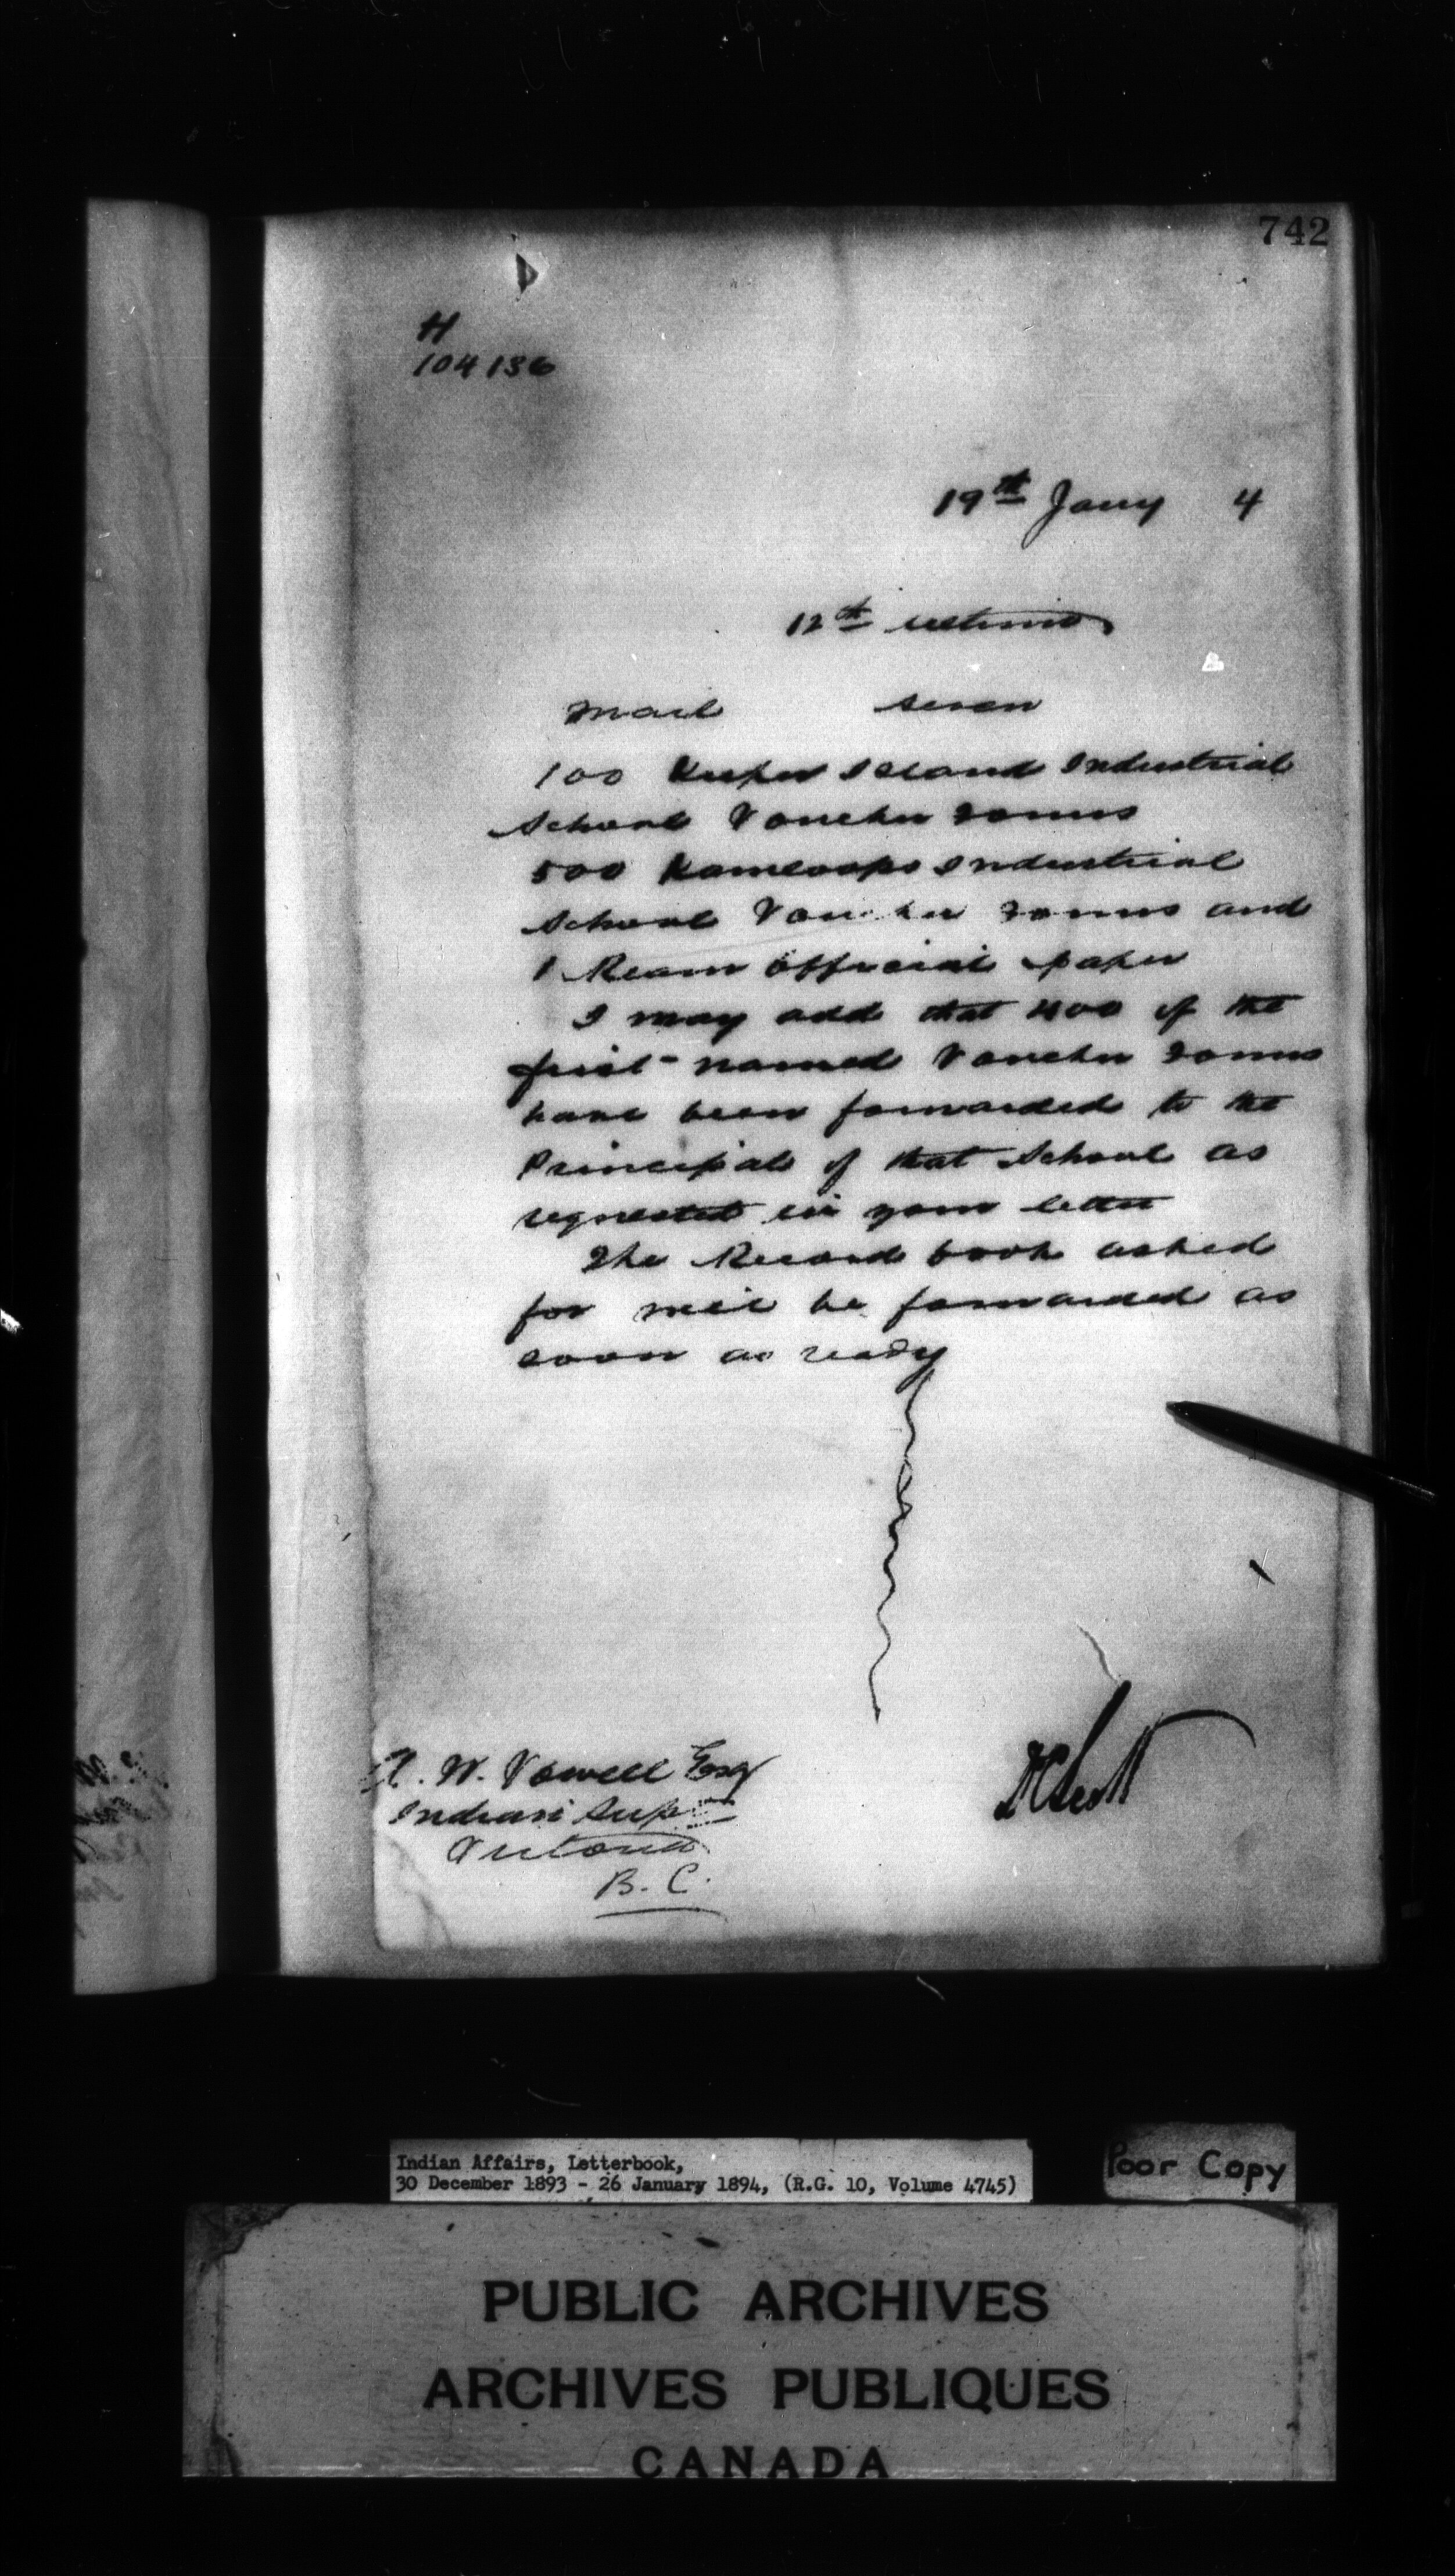 742
H
104136
19th Jany 4
12th ultimo
Mail seven
100 Kuper Island Industrial
School Voucher Forms
500 Kamloops Industrial
School Voucher Forms and
1 Ream official paper
I may add that 400 of the
first-named Voucher Forms
have been forwarded to the
Principal of that School as
requested in your letter
The Record book asked
for will be forwarded as
soon as ready
A. W. Vowell Esq
Indian Supt
Victoria
B. C.
D C Scott
Indian Affairs, Letterbook,
30 December 1893 - 26 January 1894, (R.G. 10, Volume 4745)
Poor Copy
PUBLIC ARCHIVES
ARCHIVES PUBLIQUES
CANADA